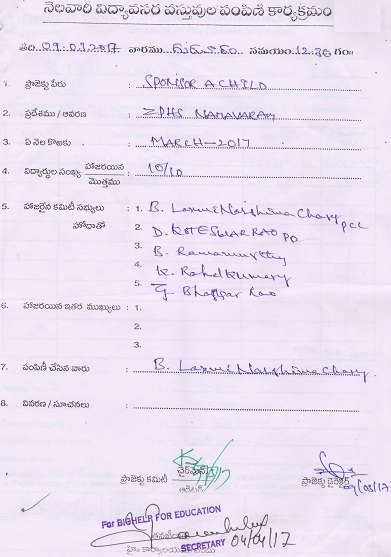 నెలవారీ విద్యావసర వస్తువుల పంపిణి కార్యక్రమం
తేది..09.03.2017 వారము..గురువారం.. సమయం.12.30 గం॥
1. ప్రాజెక్టు పేరు : SPONSOR A CHILD
2. ప్రదేశము / ఆవరణ : ZPHS NAMAVARAM
3. ఏ నెల కొఱకు : MARCH-2017
4. విద్యార్థుల సంఖ్య హాజరయిన / మొత్తము : 10/10
5. హాజరైన కమిటీ సభ్యులు : 1. B. Laxmi Narshima Chary PCC
హోదాతో 2. D. KOTESWAR RAO PO
3. B. Ramamurthy
4. K. Rahel Kumary
5. G. Bhaskar Rao
6. హాజరయిన ఇతర ముఖ్యులు : 1.
2.
3.
7. పంపిణీ చేసిన వారు : B. Laxmi Narshima Chary
8. వివరణ / సూచనలు :
ప్రాజెక్టు కమిటీ చైర్మన్
ఆడిటర్
ప్రాజెక్టు డైరెక్టర్
9/03/17
For BIGHELP FOR EDUCATION
SECRETARY 04/04/17